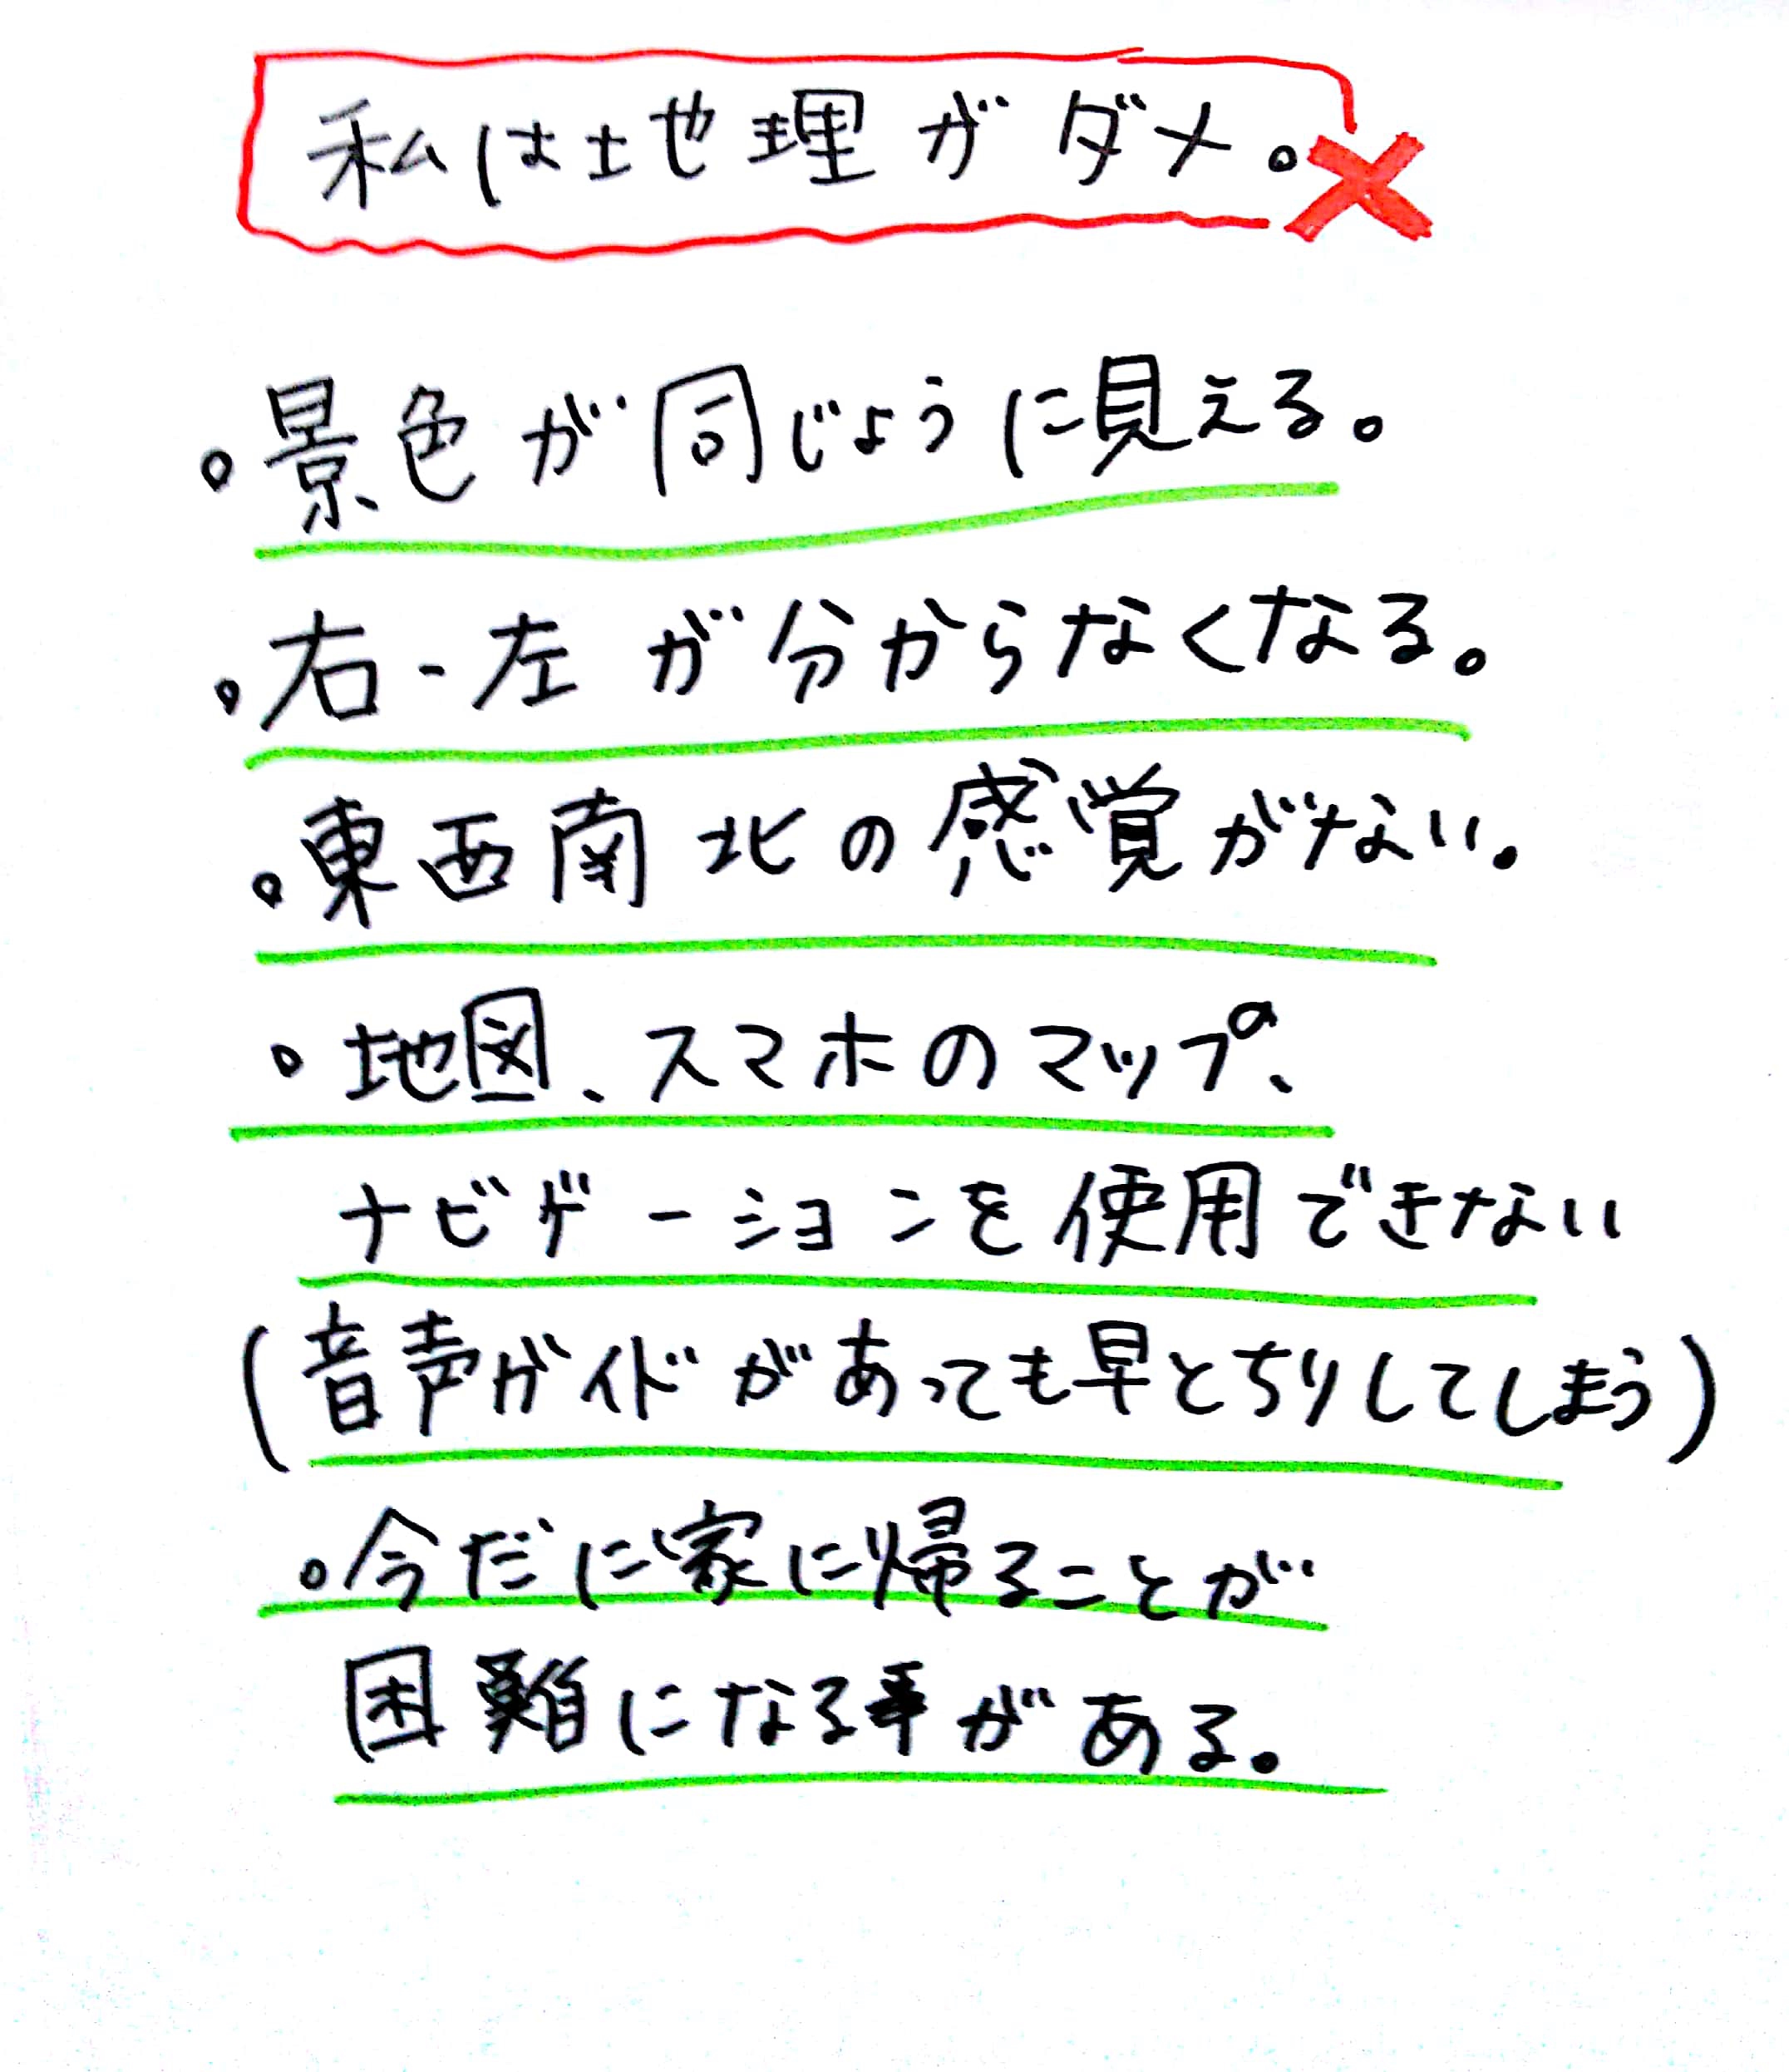 私は地理がダメ。
。景色が同じように見える。
。右-左が分からなくなる。
。東西南北の感覚がない。
。地図、スマホのマップ、
ナビゲーションを使用できない
(音声ガイドがあっても早とちりしてしまう)
。今だに家に帰ることが
困難になる事がある。